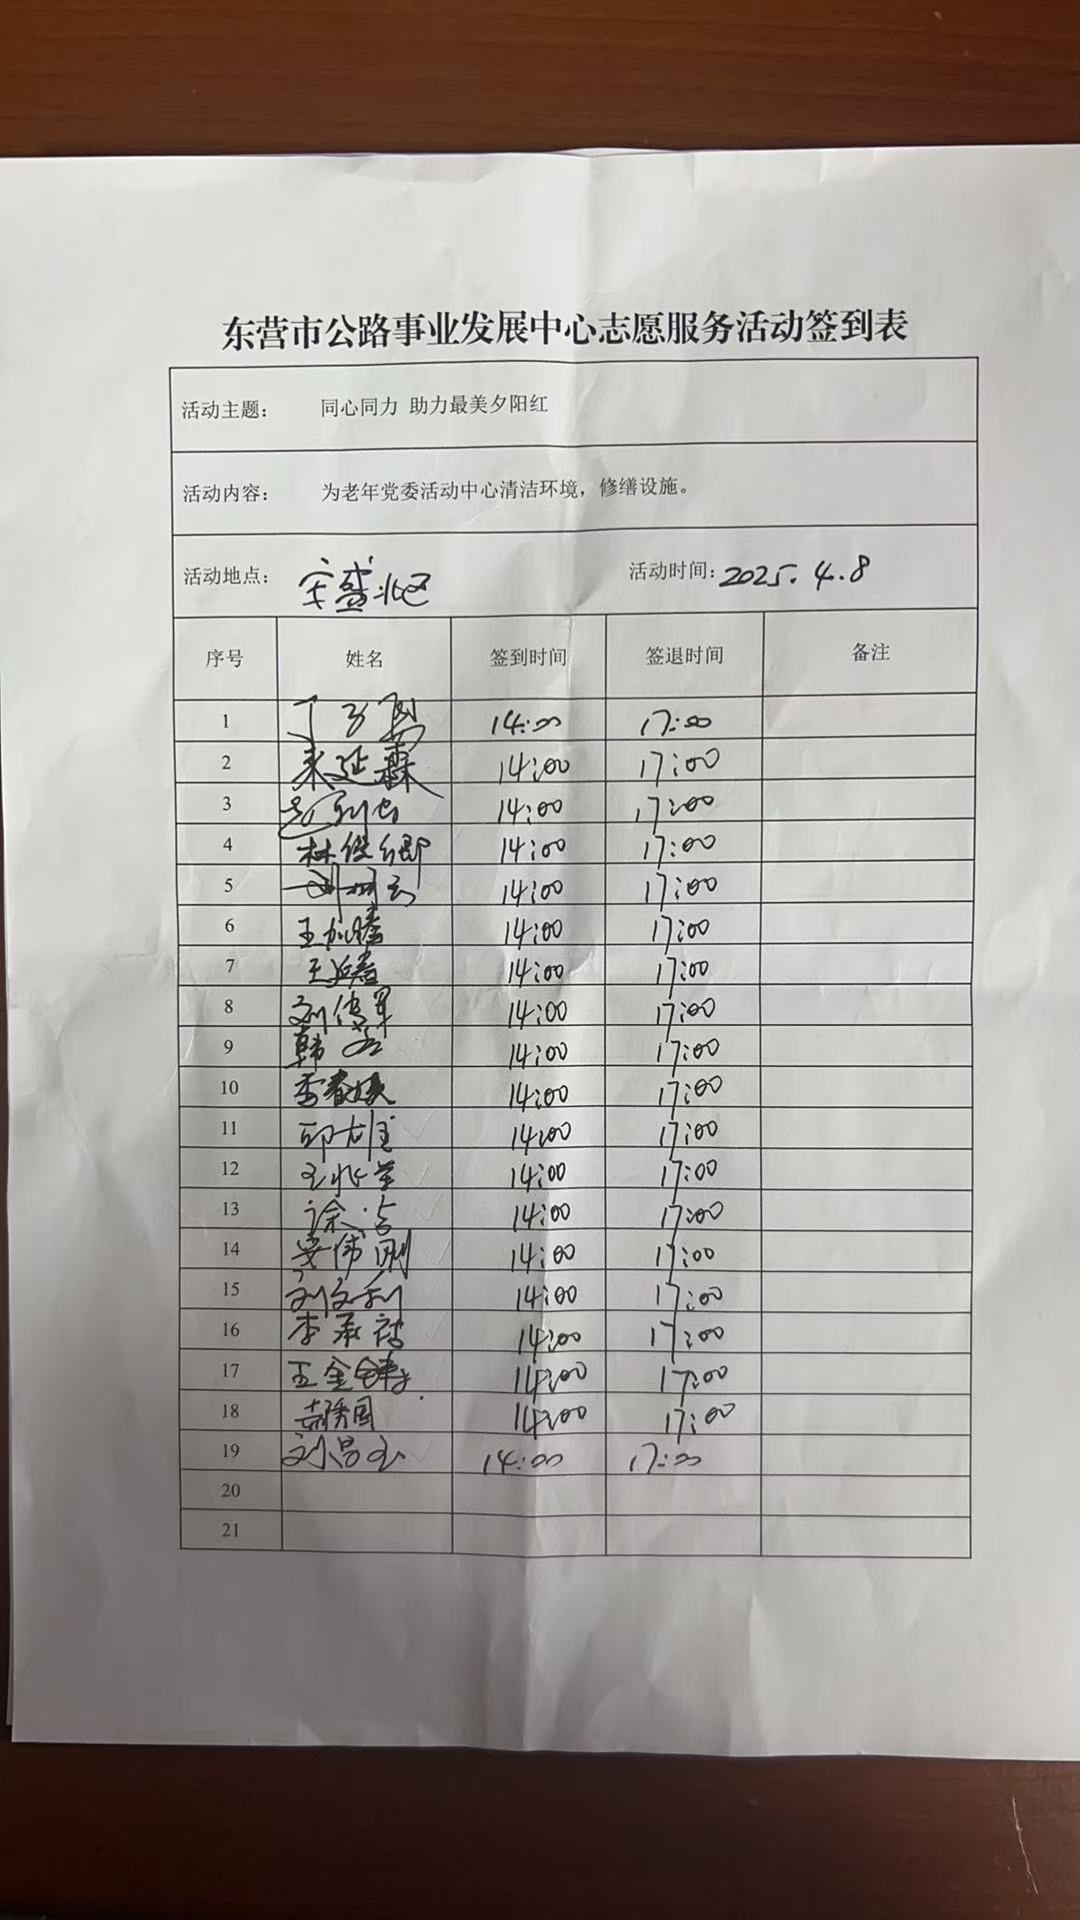 东营市公路事业发展中心志愿服务活动签到表
活动主题： 同心同力 助力最美夕阳红
活动内容： 为老年党委活动中心清洁环境，修缮设施。
活动地点： 宏盛北区 活动时间：2025.4.8
序号 姓名 签到时间 签退时间 备注
1 14:00 17:00
2 14:00 17:00
3 14:00 17:00
4 14:00 17:00
5 14:00 17:00
6 王加腾 14:00 17:00
7 14:00 17:00
8 刘传军 14:00 17:00
9 韩 14:00 17:00
10 李春 14:00 17:00
11 14:00 17:00
12 王兆 14:00 17:00
13 徐 14:00 17:00
14 安伟刚 14:00 17:00
15 刘文利 14:00 17:00
16 李承 14:00 17:00
17 王金 14:00 17:00
18 14:00 17:00
19 刘昌玉 14:00 17:00
20
21